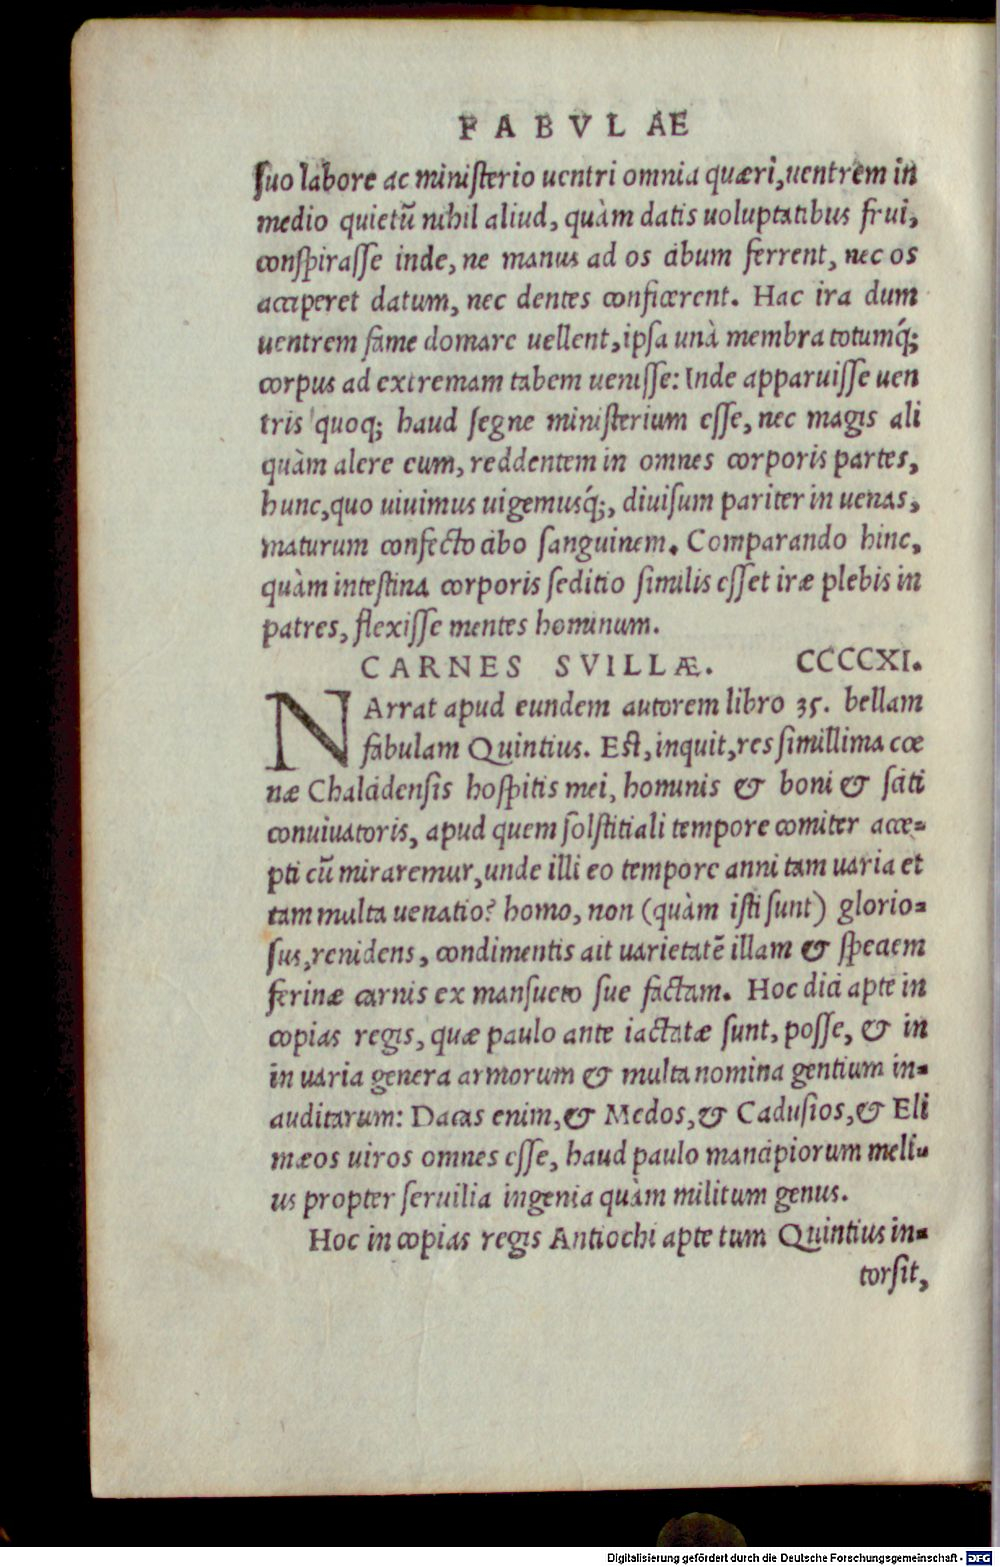 FABVLAE
ſuo labore ac miniſterio uentri omnia quæri, uentrem in
medio quietũ nihil aliud, quàm datis uoluptatibus frui,
conſpiraſſe inde, ne manus ad os cibum ferrent, nec os
acciperet datum, nec dentes conficerent. Hac ira dum
uentrem fame domare uellent, ipſa unà membra totumq́;
corpus ad extremam tabem ueniſſe: Inde apparuiſſe uen
tris quoq; haud ſegne miniſterium eſſe, nec magis ali
quàm alere eum, reddentem in omnes corporis partes,
hunc, quo uiuimus uigemusq́;, diuiſum pariter in uenas,
maturum confecto cibo ſanguinem. Comparando hinc,
quàm inteſtina corporis ſeditio ſimilis eſſet iræ plebis in
patres, flexiſſe mentes hominum.
CARNES SVILLÆ. CCCCXI.
NArrat apud eundem autorem libro 35. bellam
fabulam Quintius. Eſt, inquit, res ſimillima cœ
næ Chalcidenſis hoſpitis mei, hominis & boni & ſciti
conuiuatoris, apud quem ſolſtitiali tempore comiter acce-
pti cũ miraremur, unde illi eo tempore anni tam uaria et
tam multa uenatio? homo, non (quàm iſti ſunt) glorio-
ſus, renidens, condimentis ait uarietatẽ illam & ſpeciem
ferinæ carnis ex manſueto ſue factam. Hoc dici apte in
copias regis, quæ paulo ante iactatæ ſunt, poſſe, & in
in uaria genera armorum & multa nomina gentium in-
auditarum: Dacas enim, & Medos, & Caduſios, & Eli
mæos uiros omnes eſſe, haud paulo mancipiorum meli-
us propter ſeruilia ingenia quàm militum genus.
Hoc in copias regis Antiochi apte tum Quintius in-
torſit,
Digitalisierung gefördert durch die Deutsche Forschungsgemeinschaft - DFG